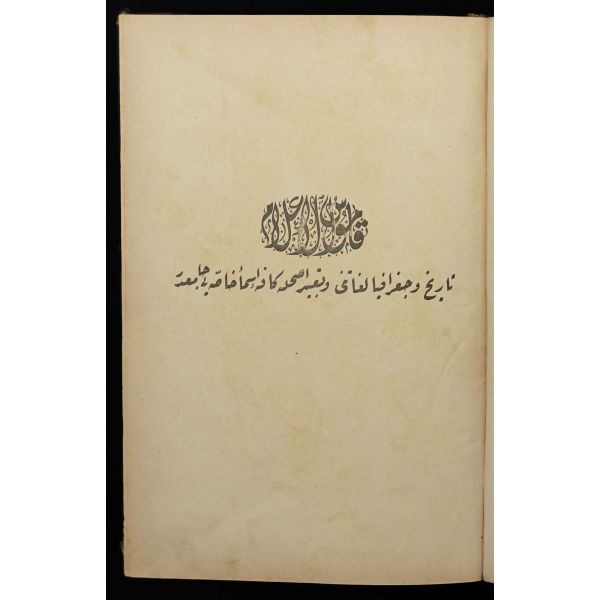 قاموس الاعلام
تاریخ و جغرافیا لغاتنی و بتعبیر اصحله کافهٔ اسمأ خاصه‌یی جامعدر